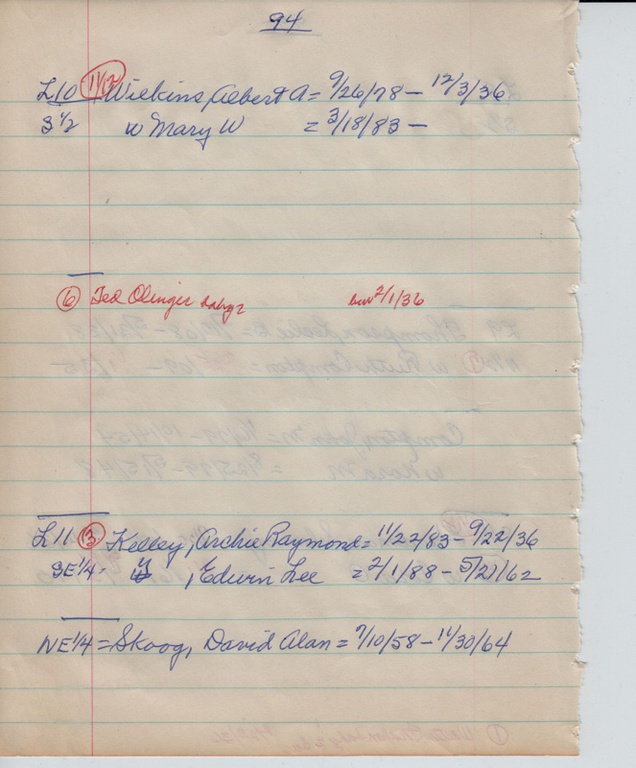 94
L10 11/12 Wilkins, Albert A = 9/26/78 - 12/3/36
S 1/2 w Mary W = 3/18/83 -
6 Ted Olinger baby 2 bur 2/1/36
L11 3 Kelley, Archie Raymond = 11/22/83 - 9/22/36
SE 1/4 - , Edwin Lee = 2/1/88 - 5/21/62
NE 1/4 = Skoog, David Alan = 7/10/58 - 11/30/64